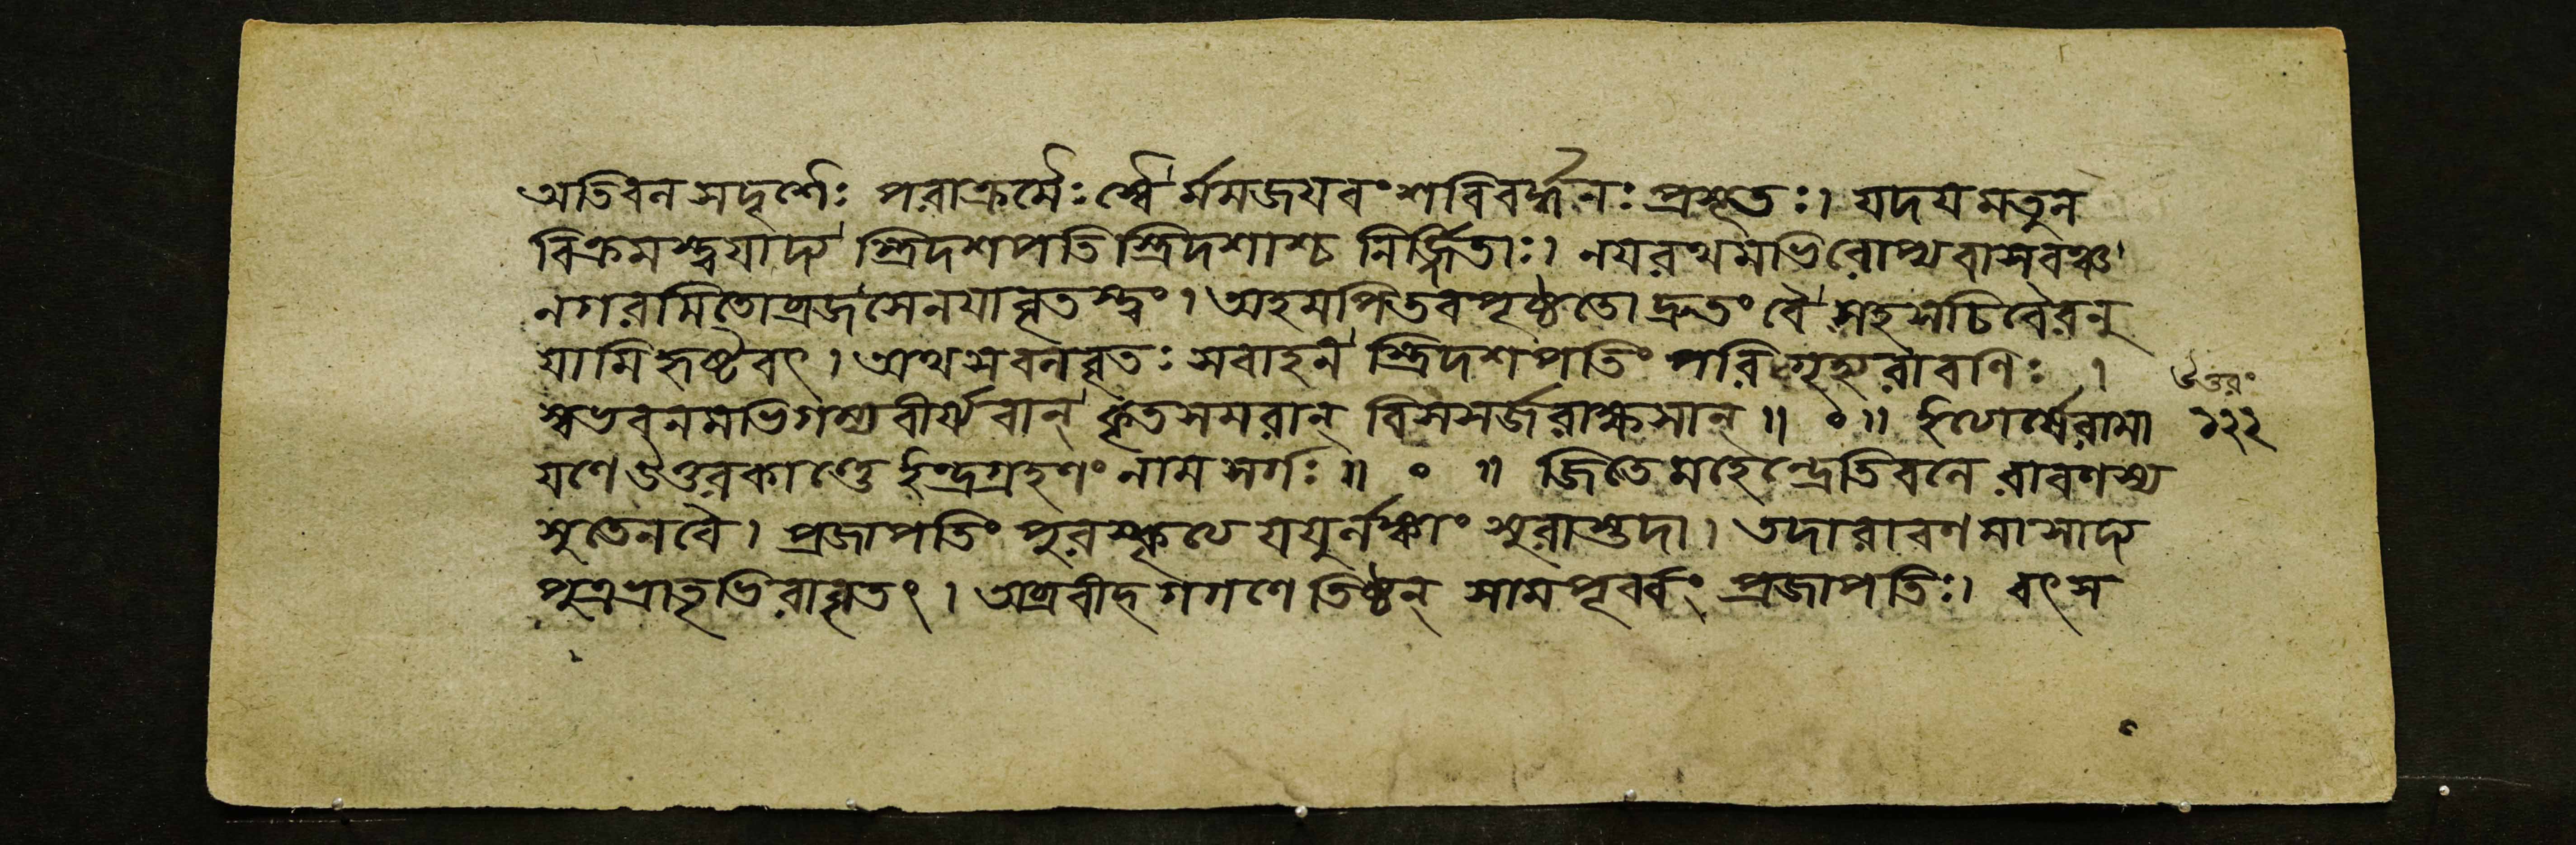 অতিবল সদৃশৈঃ পরাক্রমৈঃ স্বৈর্মমজয়বংশবিবর্দ্ধনঃ প্রসূতঃ। যদয়মতুল
বিক্রমস্ত্বয়াদ্য স্ত্রিদশপতিস্ত্রিদশাশ্চ নির্জ্জিতাঃ। নয়রথমভিরোপ্যবাসবঞ্চ
নগরমিতোব্রজসেনয়াবৃতস্ত্বং। অহমপিতবপৃষ্ঠতো দ্রুতং বৈ সহসচিবৈরনু
যামি হৃষ্টবৎ। অথসবলবৃতঃ সবাহন স্ত্রিদশপতিং পরিগৃহ্য রাবণিঃ।
উত্তরং
স্বভবনমভিগম্যবীর্য্যবান্ কৃতসমরান্ বিসসর্জরাক্ষসান্॥ ০॥ ইত্যার্ষেরামা
১২২
য়ণে উত্তরকাণ্ডে ইন্দ্রগ্রহণং নাম সর্গঃ॥ ০ ॥ জিতেমহেন্দ্রেতিবলে রাবণস্য
সুতেনবৈ। প্রজাপতিং পুরস্কৃত্য যযুর্লঙ্কাং সুরাস্তদা। তদারাবণমাসাদ্য
পুত্রভ্রাতৃভিরাবৃতং। অব্রবীদ্গগণে তিষ্ঠন্ সামপূর্ব্বং প্রজাপতিঃ। বৎস